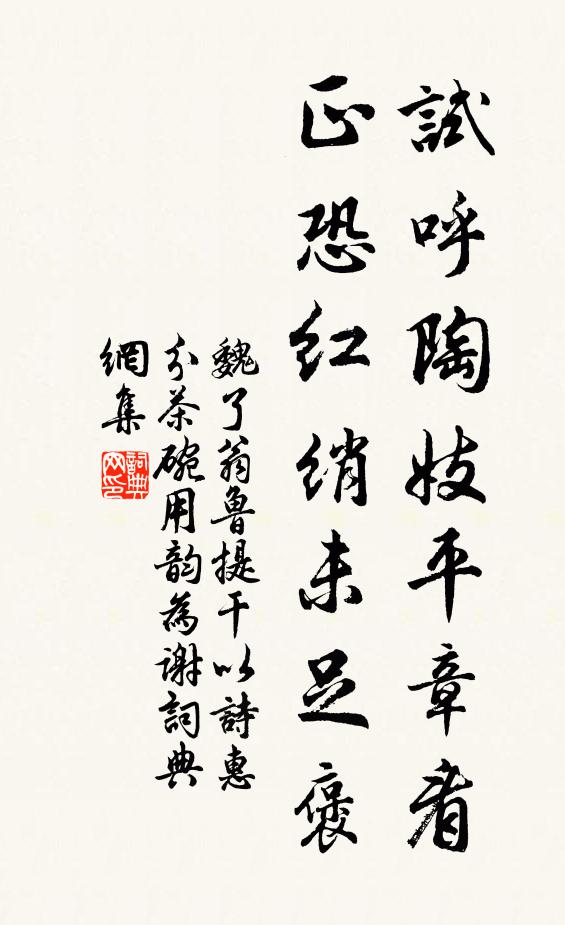 試呼陶妓平章看
正恐紅綃未足褒
魏了翁魯提干以詩惠
分茶碗用韵為謝詞典
網集
詞典
网印